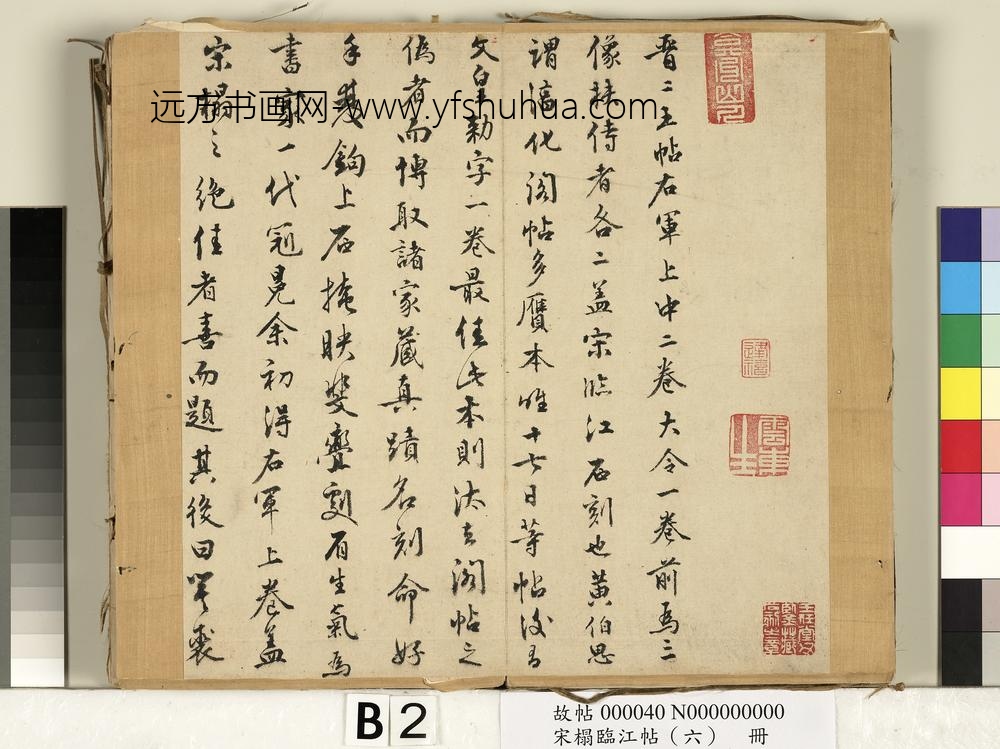 晋二王帖右軍上中二卷大令一卷前為三
像扶侍者各二蓋宋臨江石刻也黄伯思
謂淳化閣帖多贋本唯十七日等帖後有
文皇勑字一卷最佳此本則汰去閣帖之
偽者而博取諸家藏真蹟名刻命好
手雙鉤上石掩映斐亹劇有生氣為
書家一代冠冕余初得右軍上卷蓋
宋搨之絶佳者喜而題其後曰裘
远方书画网-www.yfshuhua.com
B 2
故帖 000040 N000000000
宋榻臨江帖（六） 冊